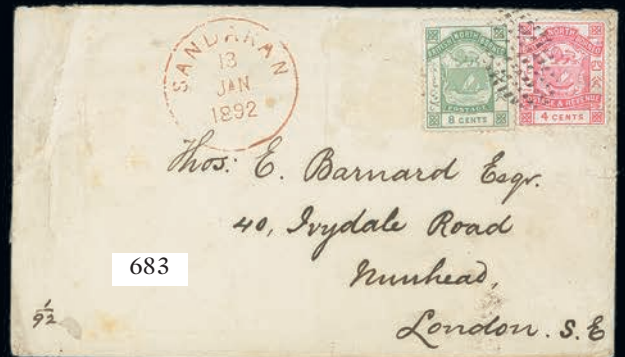 SANDAKAN
13
JAN
1892
BRITISH NORTH BORNEO
POSTAGE
8 CENTS
NORTH BORNEO
POSTAGE & REVENUE
4 CENTS
Thos: E. Barnard Esqr.
40, Ivydale Road
Nunhead,
London. S.E
683
1/92